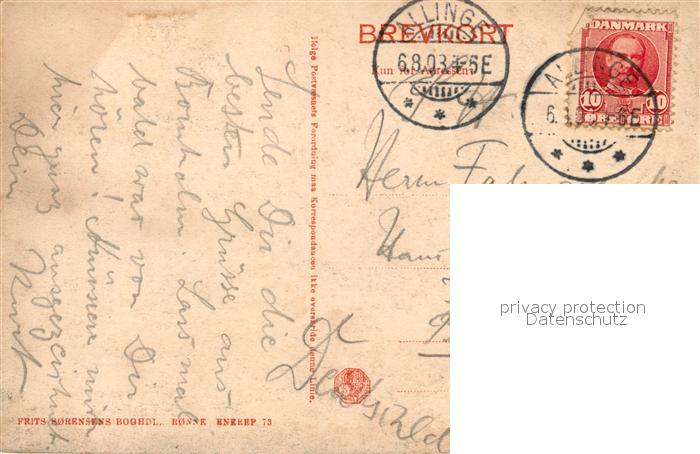 BREVKORT
Kun for Adressen
ALLINGE
6.8.03.4-6E
DANMARK
10 10
ØRE
ALLINGE
Herrn
Hans
Deutschld
privacy protection
Datenschutz
Ifølge Postvæsnets Forordning maa Korrespondancen ikke overskride denne Linie.
Sende Dir die
besten Grüsse aus
Bornholm. Lass mal
bald was von Dir
hören! Amüsiere mich
hier ganz ausgezeichnet.
Dein Kurt
FRITS SØRENSENS BOGHDL., RØNNE ENEREP 73